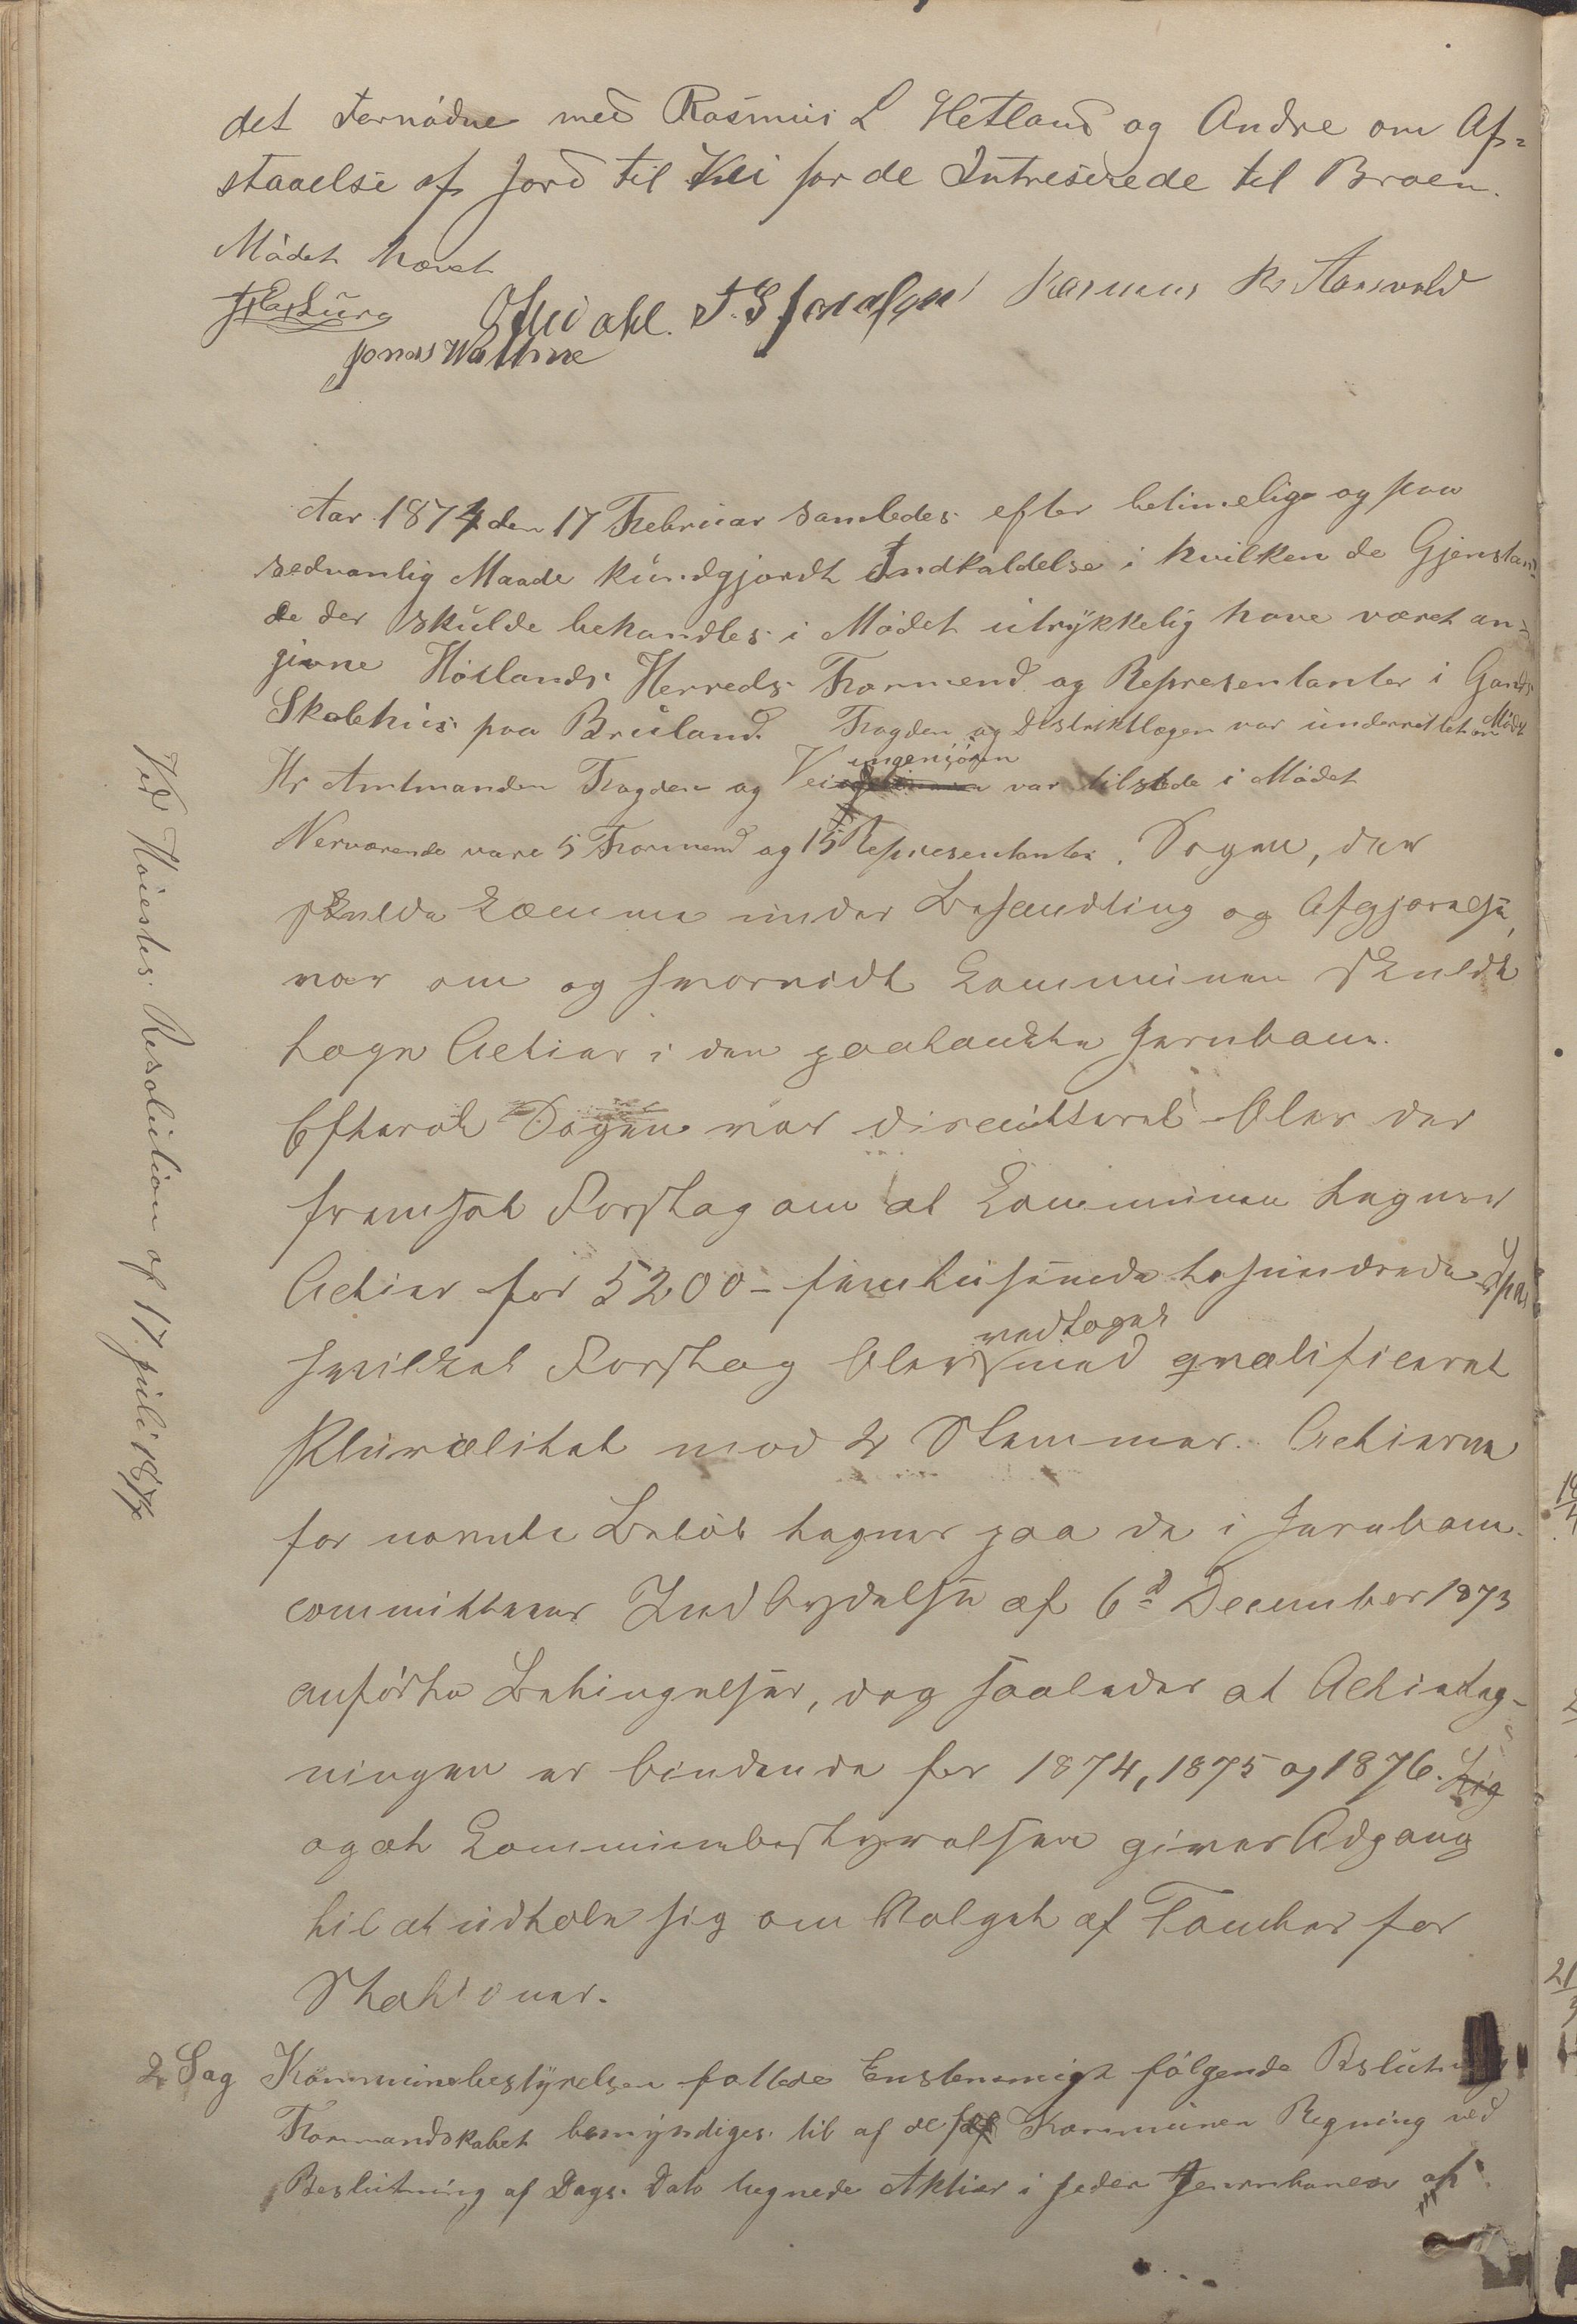 det fornødne med Rasmus L Hetland og Andre om Af=
staaelse af Jord til Vei for de Intreserede til Broen.
Mødet hævet
Jonas Wathne
Rasmus R. Aanvold
Aar 1874 den 17 Februar samledes efter betimelig og paa
sedvanlig Maade kundgjordt Indkaldelse i hvilken de Gjenstan=
de der skulde behandles i Mødet utrykkelig have været an=
givne Høilands Herreds Formend og Representanter i Gands
Skolehus paa Brueland. Fogden og Distriktlægen var underrettet om Mødet
Hr Amtmanden Fogden og Veiingeniøren var tilstede i Mødet
Nerværende vare 5 Formend og 15 Representanter. Sagen, der
skulde komme under Behandling og Afgjørelse,
var om og hvorvidt Communen skulde
tegne Actier i den paatænkte Jernbane.
Efterat Sagen var discutteret blev der
fremsat Forslag om at Communen tegner
Actier for 5200 – femtusinde tohundrede Spd
hvilket Forslag blev vedtaget med qvalificeret
Pluralitet mod 2 Stemmer. Actierne
for nævnte Beløb tegnes paa de i Jernbane-
committeens Indbydelse af 6d December 1873
anførte Betingelser, dog saaledes at Actieteg-
ningen er bindende for 1874, 1875 og 1876.
og at Communebestyrelsen gives Adgang
til at udtale sig om Valget af Tomter for
Stationer.
2 Sag Kommunebestyrelsen fattede Enstemmigt følgende Beslutning
Formandskabet bemyndiges til af de for Kommunen Regning ved
Beslutning af Dags Dato tegnede Aktier i Jeder Jernbanen at
Ved Høiestes Resolution af 17 Juli 1874